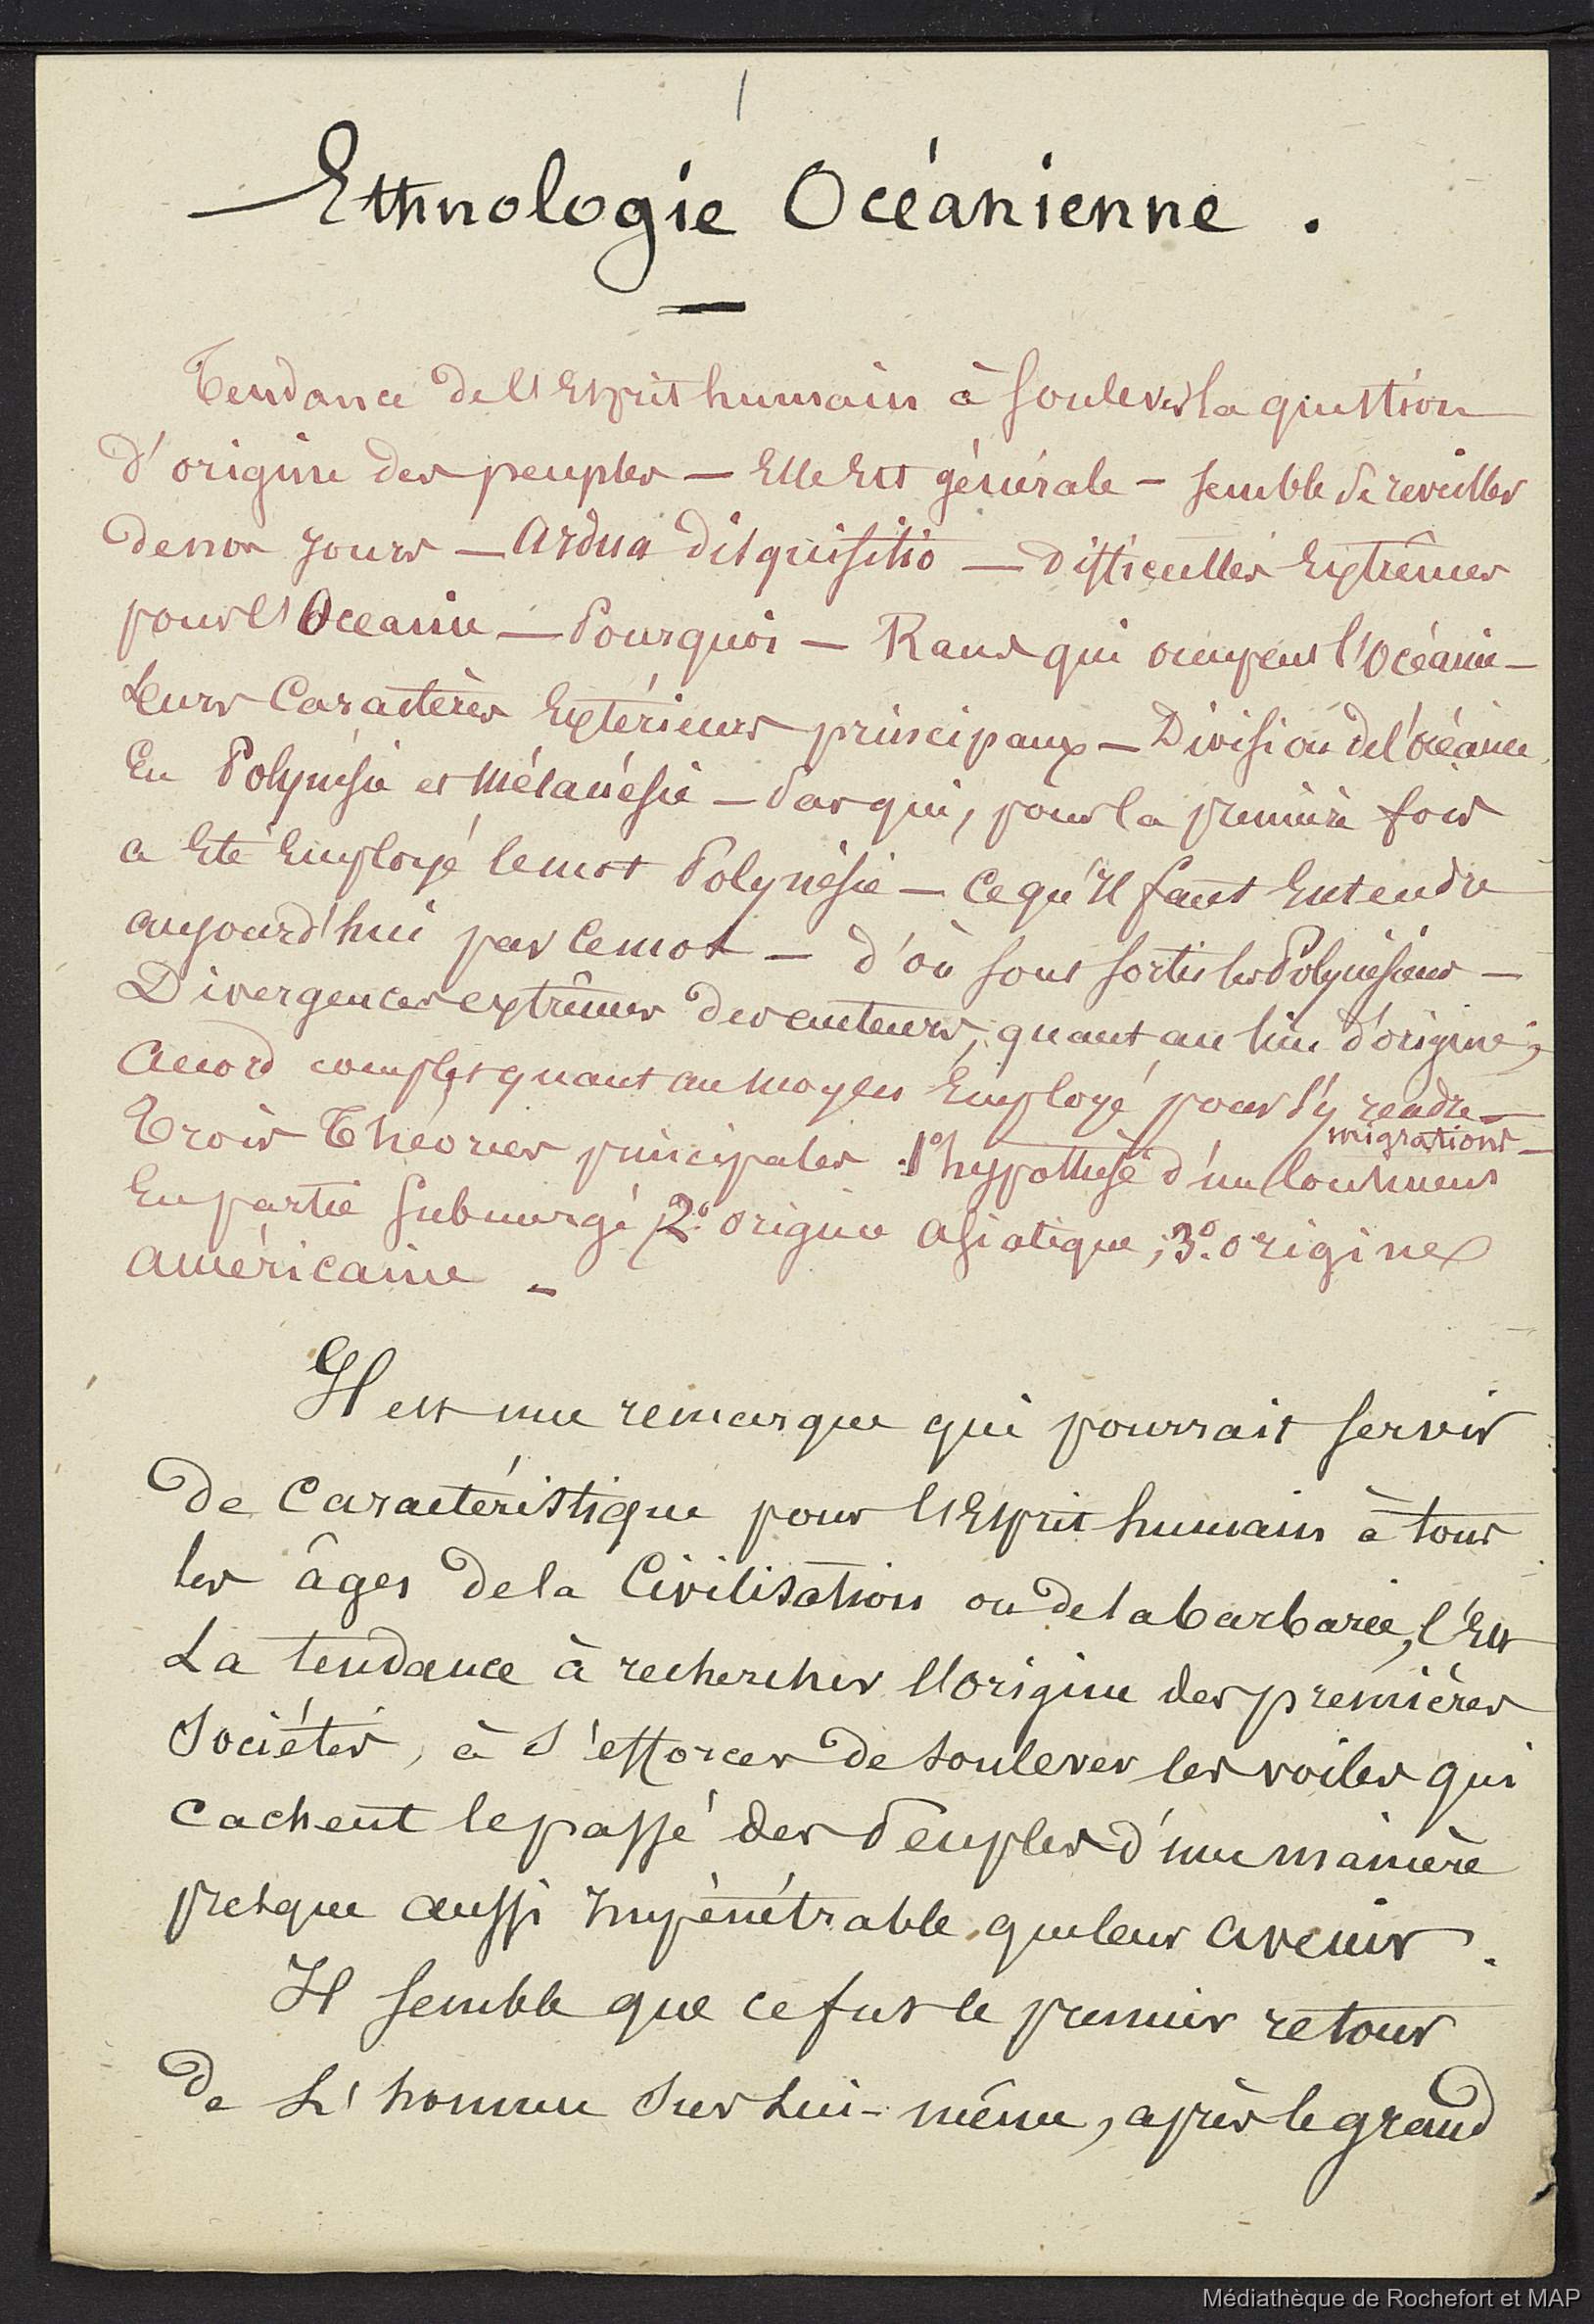 1
Ethnologie Océanienne .
Tendance de l'Esprit humain à soulever la question
d'origine des peuples — Elle Est générale — semble se reveiller
de nos jours — Ardua disquisitio — Difficultés Extrêmes
pour l'Oceanie — Pourquoi — Races qui occupent l'Océanie —
Leurs Caractères Extérieurs principaux — Division de l'océanie
En Polynésie et Mélanésie — Par qui, pour la première fois
a Eté Employé le mot Polynésie — Ce qu'Il faut Entendre
aujourd'hui par ce mot — d'où sont sortis les Polynésiens —
Divergences extrêmes des auteurs, quant au lieu d'origine ;
accord complet quant au moyen Employé pour s'y rendre —
migrations —
Trois Théories principales 1º hypothèse d'un Continent
En partie submergé, 2º origine asiatique ; 3º origine
américaine —
Il est une remarque qui pourrait servir
de Caractéristique pour l'Esprit humain à tous
les âges de la Civilisation ou de la barbarie, c'Est
La tendance à rechercher l'origine des premières
Sociétés, à s'efforcer de soulever les voiles qui
cachent le passé des Peuples d'une manière
presque aussi Impénétrable que leur avenir .
Il semble que ce fut le premier retour
de L'homme sur Lui-même, après le grand
Médiathèque de Rochefort et MAP